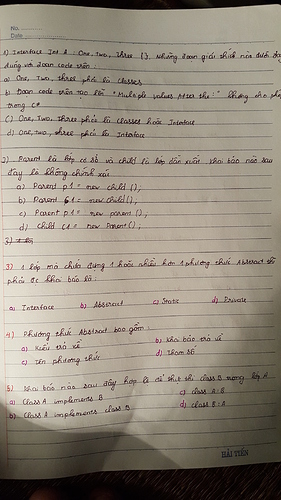 No.
Date
1) Interface Int A : One, Two, Three {}. Những đoạn giải thích nào dưới đây
đúng với đoạn code trên :
a) One, Two, Three phải là Classes
b) Đoạn code trên tạo lên "Multiple values After the :" không cho phép
trong C#
c) One, Two, Three phải là Classes hoặc Interface
d) One, two, three phải là Interface
2) Parent là lớp cơ sở và child là lớp dẫn xuất. Khai báo nào sau
đây là không chính xác
a) Parent p1 = new child ();
b) Parent c1 = new child();
c) Parent p1 = new parent ();
d) Child c1 = new Parent();
3)
3) 1 lớp mà chứa đựng 1 hoặc nhiều hơn 1 phương thức Abstract thì
phải đc khai báo là :
a) Interface b) Abstract c) Static d) Private
4) Phương thức Abstract bao gồm
a) Kiểu trả về b) Khai báo trả về
c) Tên phương thức d) Tham số
5) Khai báo nào sau đây hợp lệ để thực thi class B trong lớp A
a) Class A implements B c) class A : B
b) Class A implements class B d) class B : A
HẢI TIẾN